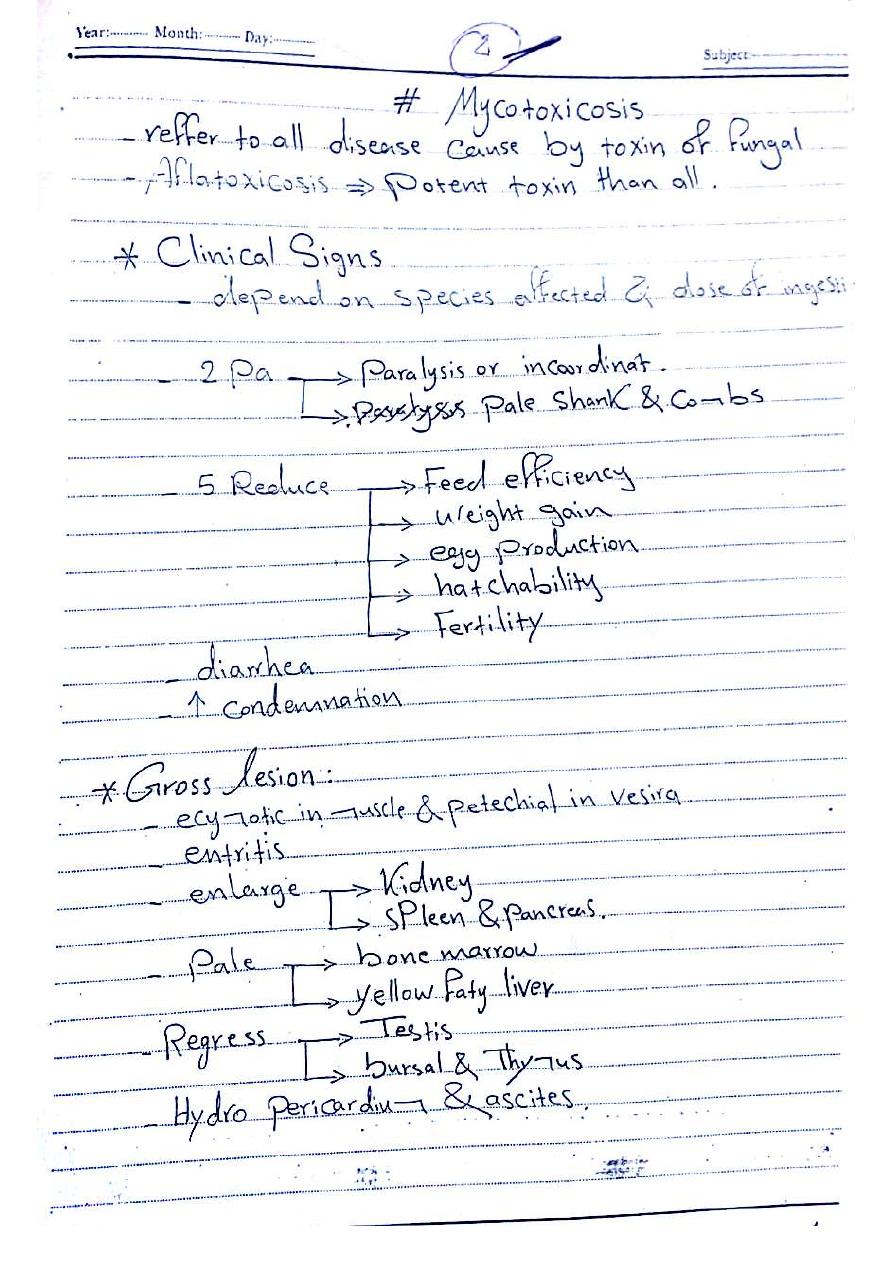 Year:......... Month:......... Day:.........
2
Subject:
# Mycotoxicosis
- reffer to all disease cause by toxin of fungal
- Aflatoxicosis ⇒ Potent toxin than all.
* Clinical Signs
- depend on species affected & dose of ingesti
- 2 Pa → Paralysis or incoordinat.
→ Pale Shank & Combs
- 5 Reduce → Feed efficiency
→ Weight gain
→ egg production
→ hatchability
→ Fertility
- diarrhea
- ↑ condemnation
* Gross lesion:
- ecymotic in muscle & petechial in vesira
- entritis
- enlarge → Kidney
→ sPleen & pancreas.
- Pale → bone marrow
→ yellow faty liver
- Regress → Testis
→ bursal & Thymus
- Hydro pericardium & ascites.